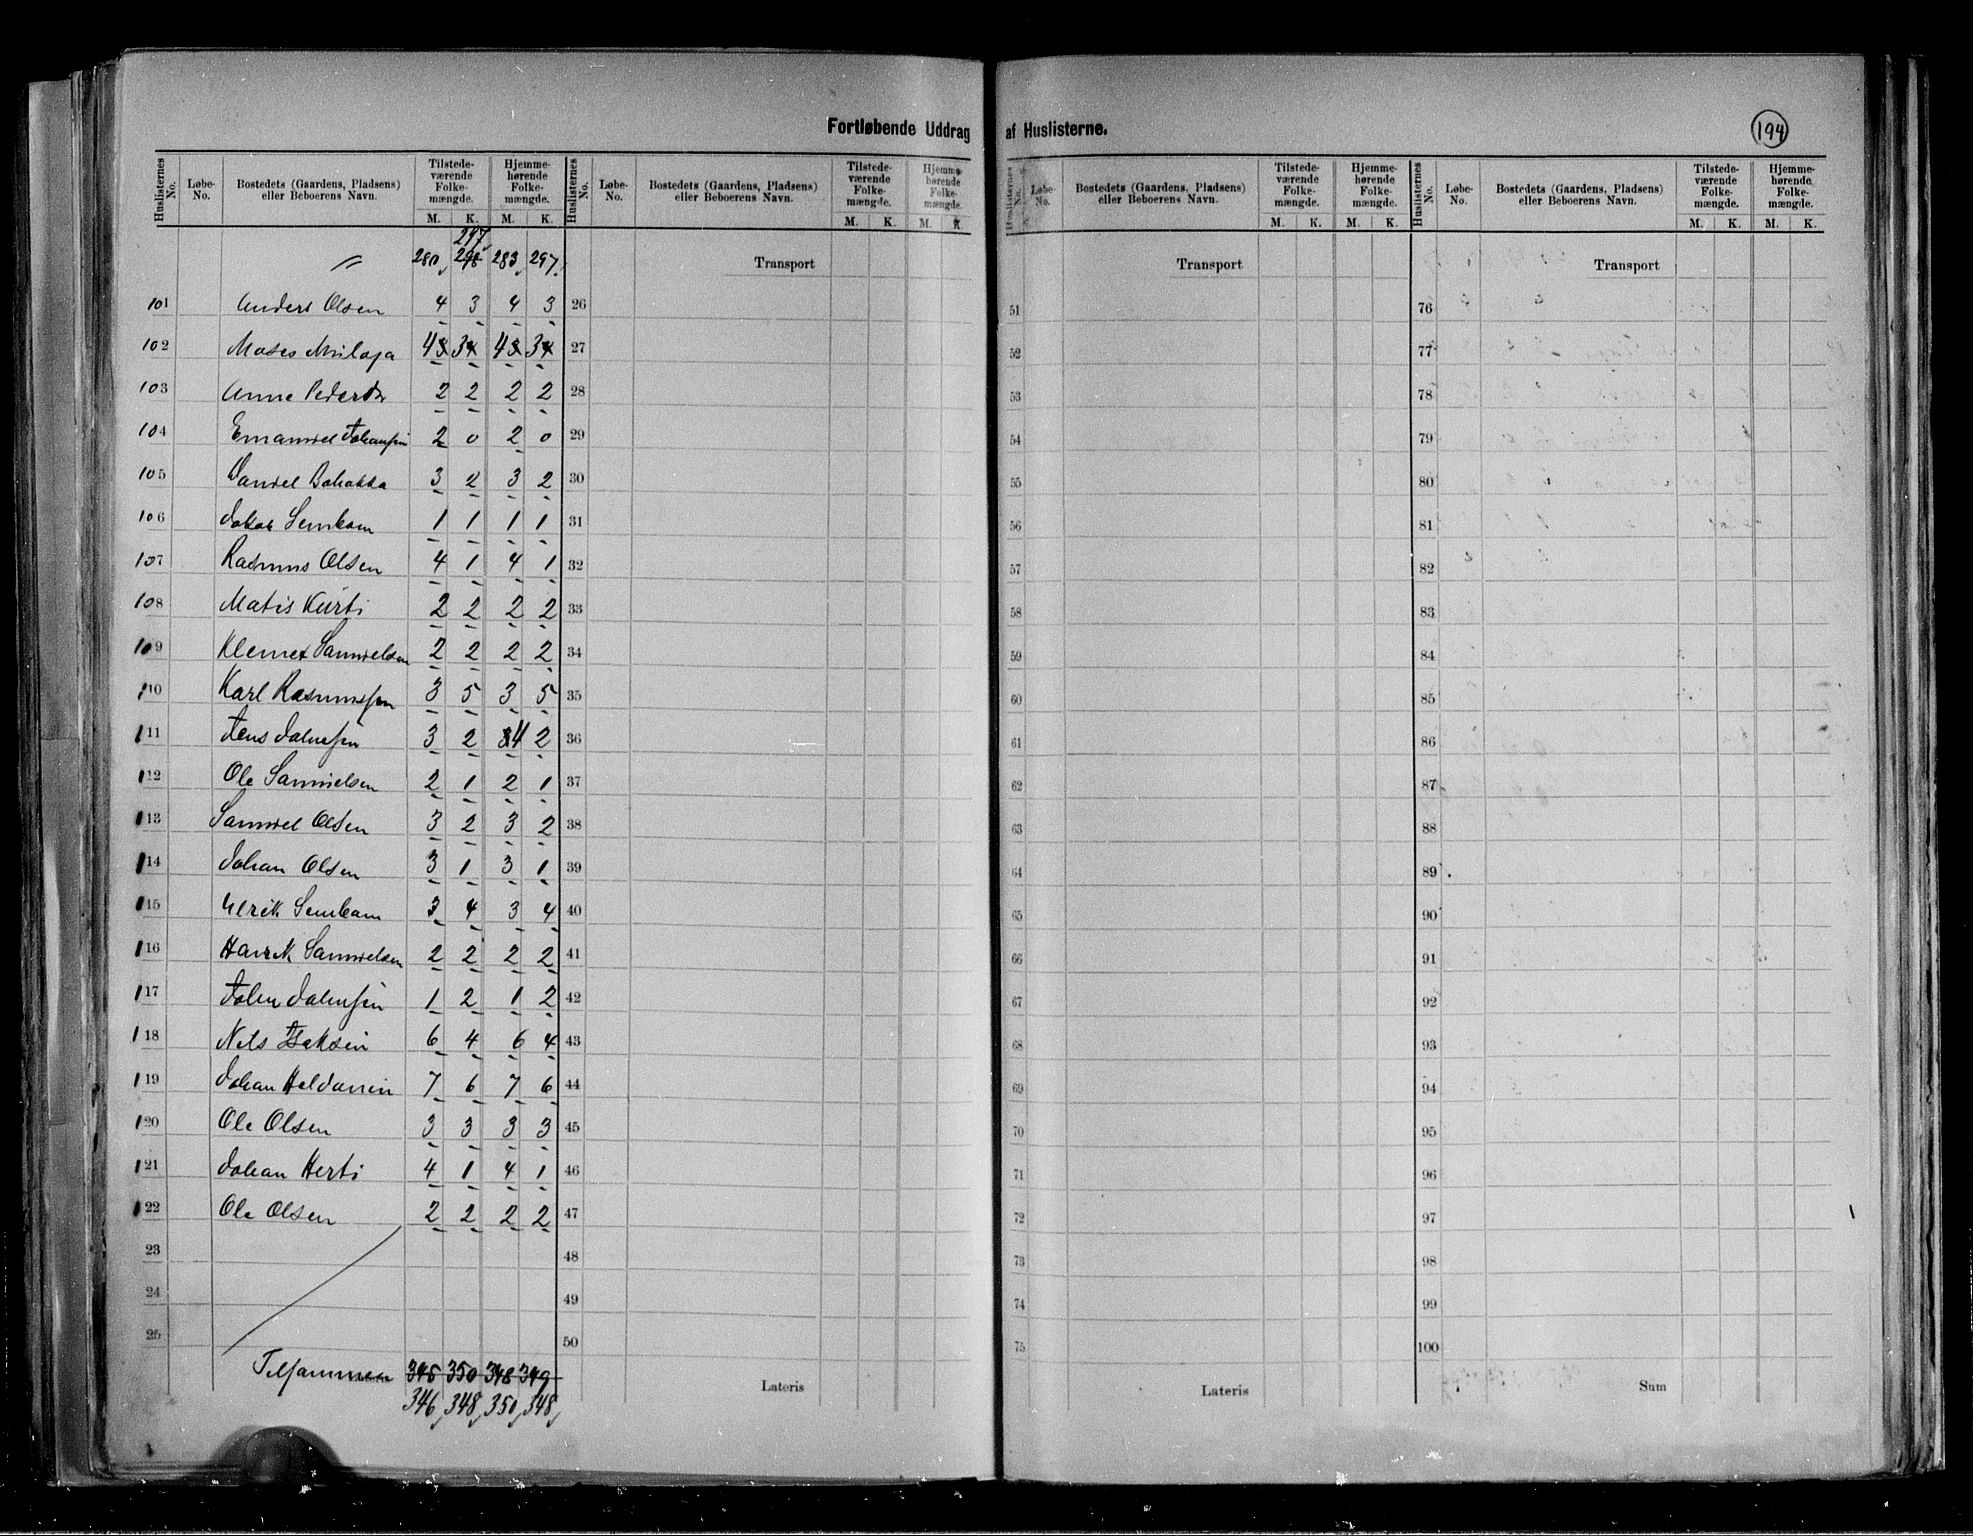 Fortløbende Uddrag af Huslisterne.
194
Huslisternes No. Løbe-No. Bostedets (Gaardens, Pladsens) eller Beboerens Navn. Tilstedeværende Folkemængde. M. K. Hjemmehørende Folkemængde. M. K.
Huslisternes No. Løbe-No. Bostedets (Gaardens, Pladsens) eller Beboerens Navn. Tilstedeværende Folkemængde. M. K. Hjemmehørende Folkemængde. M. K.
Huslisternes No. Løbe-No. Bostedets (Gaardens, Pladsens) eller Beboerens Navn. Tilstedeværende Folkemængde. M. K. Hjemmehørende Folkemængde. M. K.
Huslisternes No. Løbe-No. Bostedets (Gaardens, Pladsens) eller Beboerens Navn. Tilstedeværende Folkemængde. M. K. Hjemmehørende Folkemængde. M. K.
297
〃 280 298 283 297
101 Anders Olsen 4 3 4 3
102 Moses 4 3 4 3
103 Anne Pedersdr 2 2 2 2
104 Emanuel Johansen 2 0 2 0
105 Daniel 3 2 3 2
106 1 1 1 1
107 Rasmus Olsen 4 1 4 1
108 Matis Kurti 2 2 2 2
109 Klemet Samuelsen 2 2 2 2
110 Karl Rasmussen 3 5 3 5
111 Jens Johnsen 3 2 4 2
112 Ole Samuelsen 2 1 2 1
113 Samuel Olsen 3 2 3 2
114 Johan Olsen 3 1 3 1
115 Ulrik 3 4 3 4
116 Henrik Samuelsen 2 2 2 2
117 John Johnsen 1 2 1 2
118 Nils Isaksen 6 4 6 4
119 Johan 7 6 7 6
120 Ole Olsen 3 3 3 3
121 Johan 4 1 4 1
122 Ole Olsen 2 2 2 2
23
24
25
Tilsammen 345 350 348 349
346 348 350 348
Transport
26
27
28
29
30
31
32
33
34
35
36
37
38
39
40
41
42
43
44
45
46
47
48
49
50
Lateris
Transport
51
52
53
54
55
56
57
58
59
60
61
62
63
64
65
66
67
68
69
70
71
72
73
74
75
Lateris
Transport
76
77
78
79
80
81
82
83
84
85
86
87
88
89
90
91
92
93
94
95
96
97
98
99
100
Sum